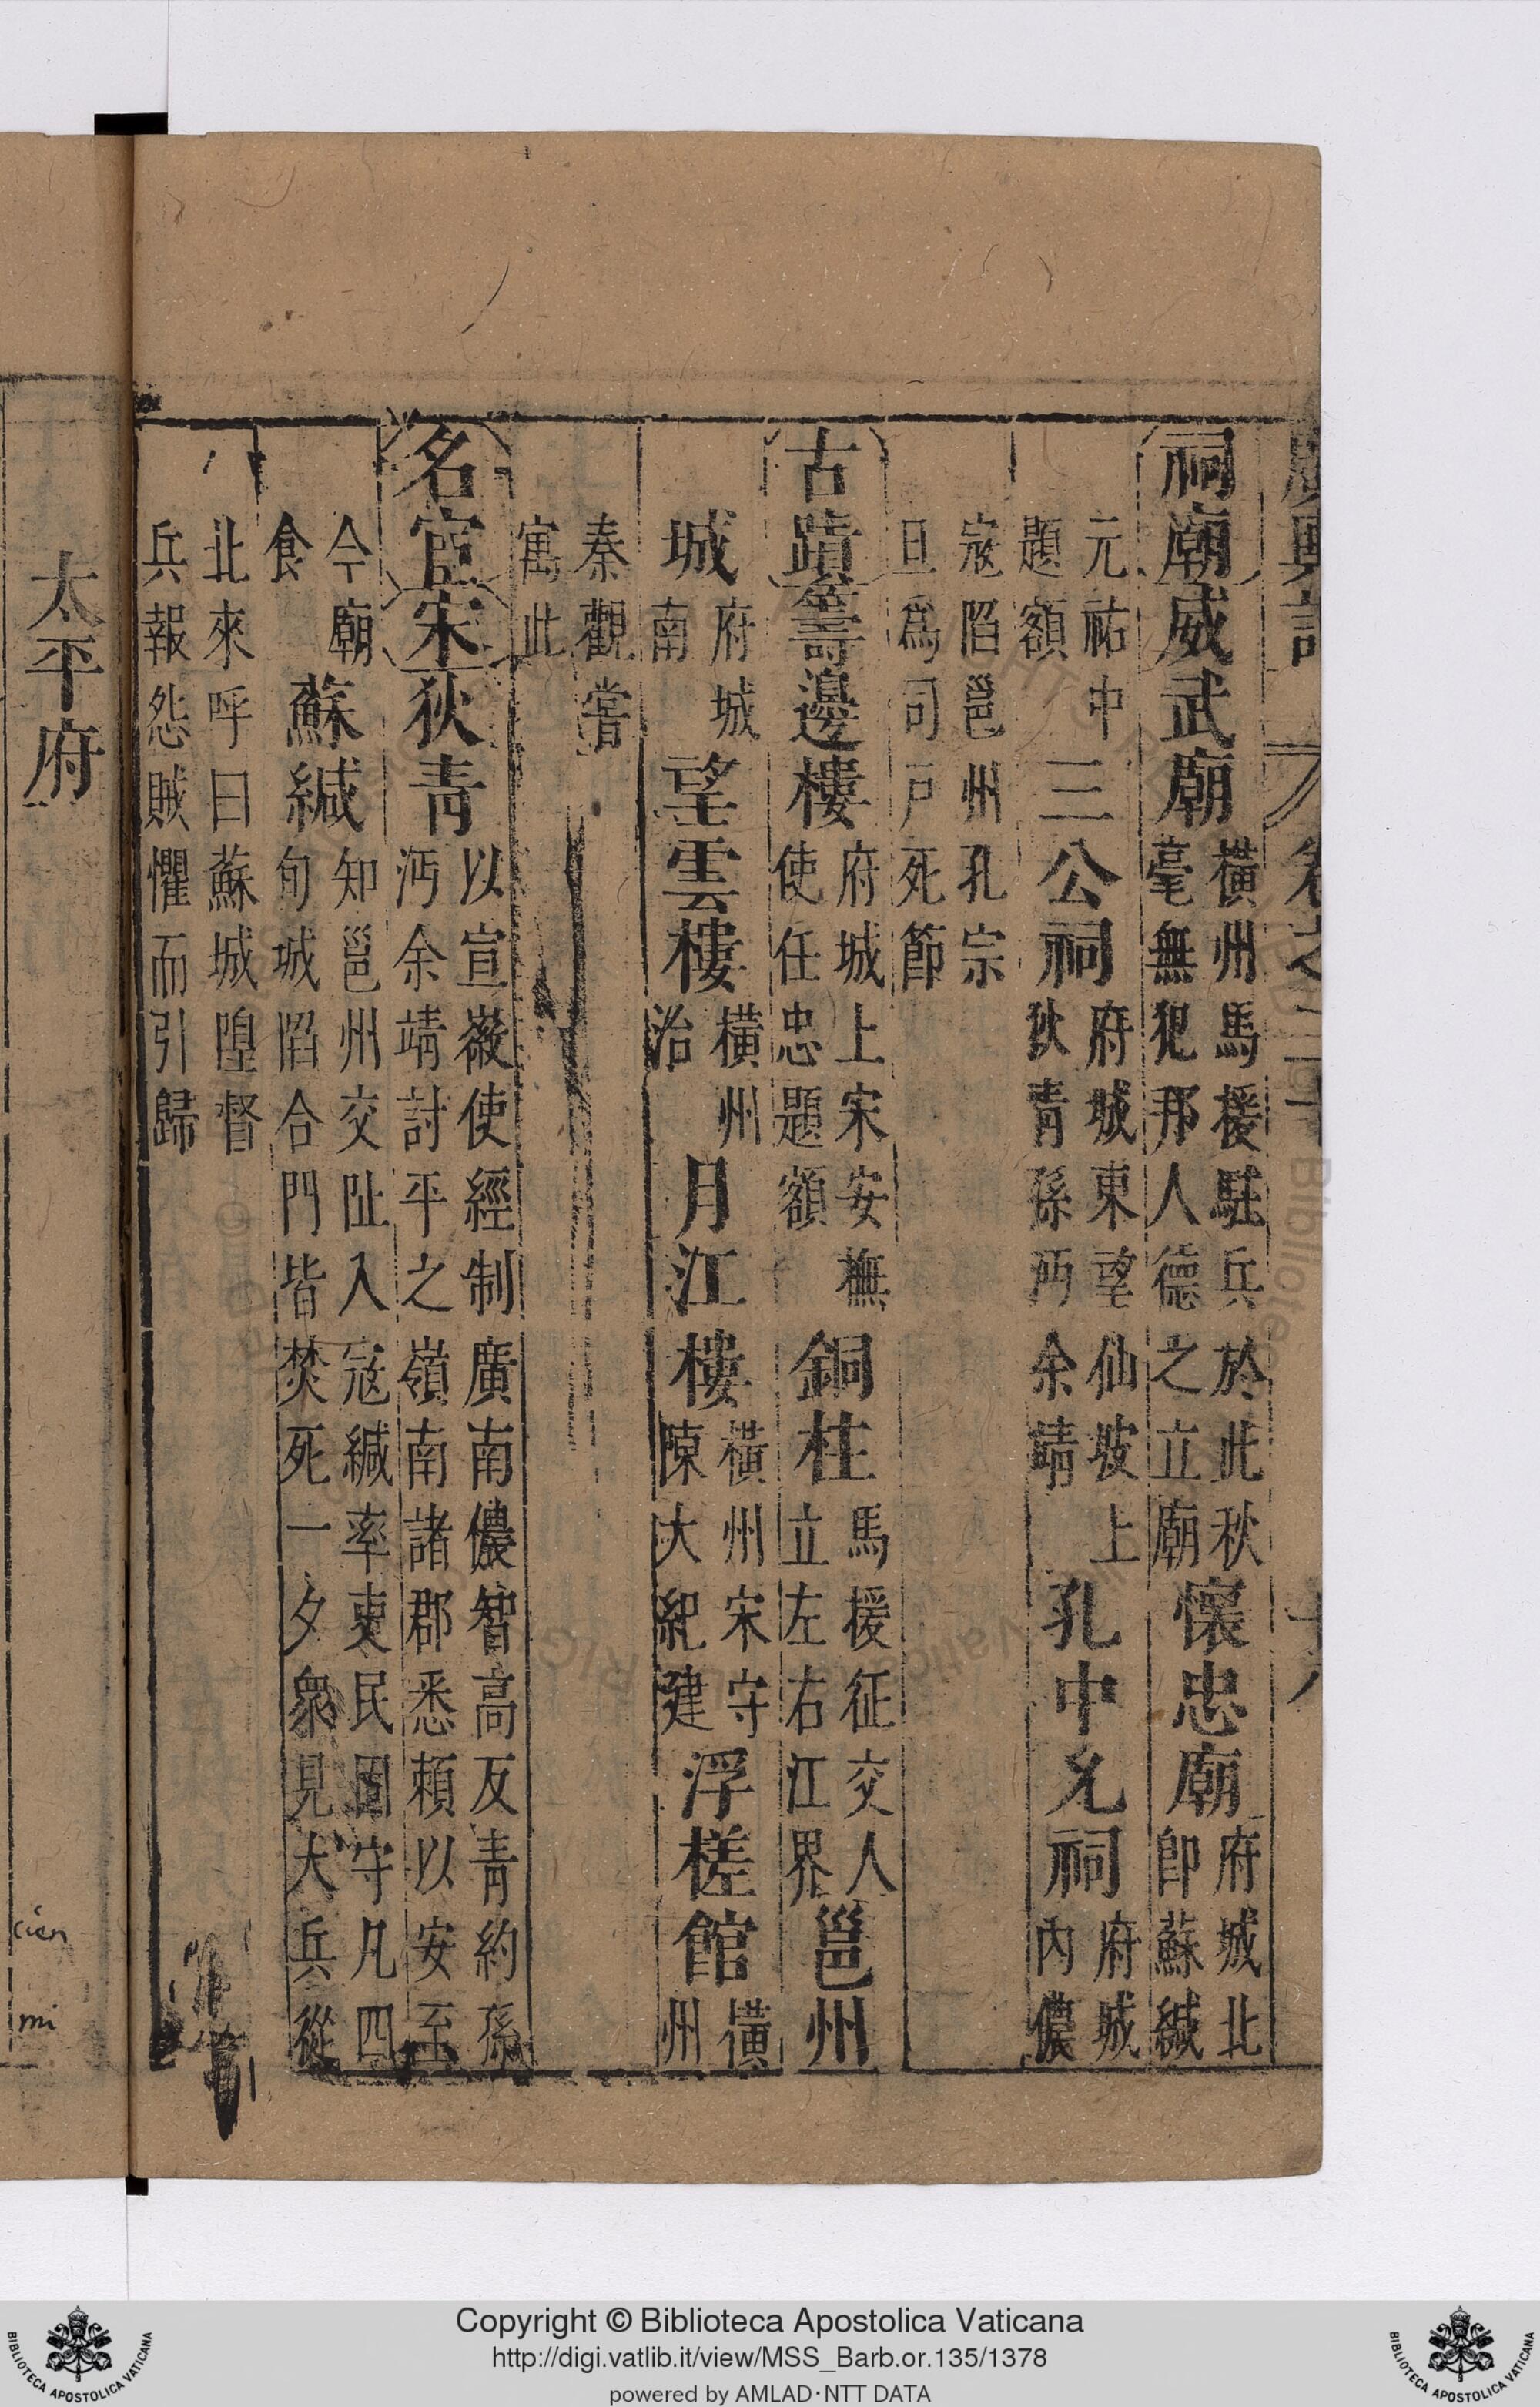 廣輿記 卷之二十
祠廟威武廟橫州馬援駐兵於此秋毫無犯那人德之立廟懷忠廟府城北卽蘇緘
元祐中題額三公祠府城東望仙坡上狄青孫沔余靖孔中允祠府城內儂
寇陷邕州孔宗旦爲司戶死節
古蹟籌邊樓府城上宋安撫使任忠題額銅柱馬援征交人立左右江界邕州
城府城南望雲樓橫州治月江樓橫州宋守陳大紀建浮槎館橫州
秦觀嘗寓此
名宦宋狄青以宣薇使經制廣南儂智高反青約孫沔余靖討平之嶺南諸郡悉賴以安至
今廟食蘇緘知邕州交阯入寇緘率吏民固守凡四旬城陷合門皆焚死一夕衆見大兵從
北來呼曰蘇城隍督兵報怨賊懼而引歸
太平府
cien
mi
Copyright © Biblioteca Apostolica Vaticana
http://digi.vatlib.it/view/MSS_Barb.or.135/1378
powered by AMLAD·NTT DATA
BIBLIOTECA APOSTOLICA VATICANA
BIBLIOTECA APOSTOLICA VATICANA